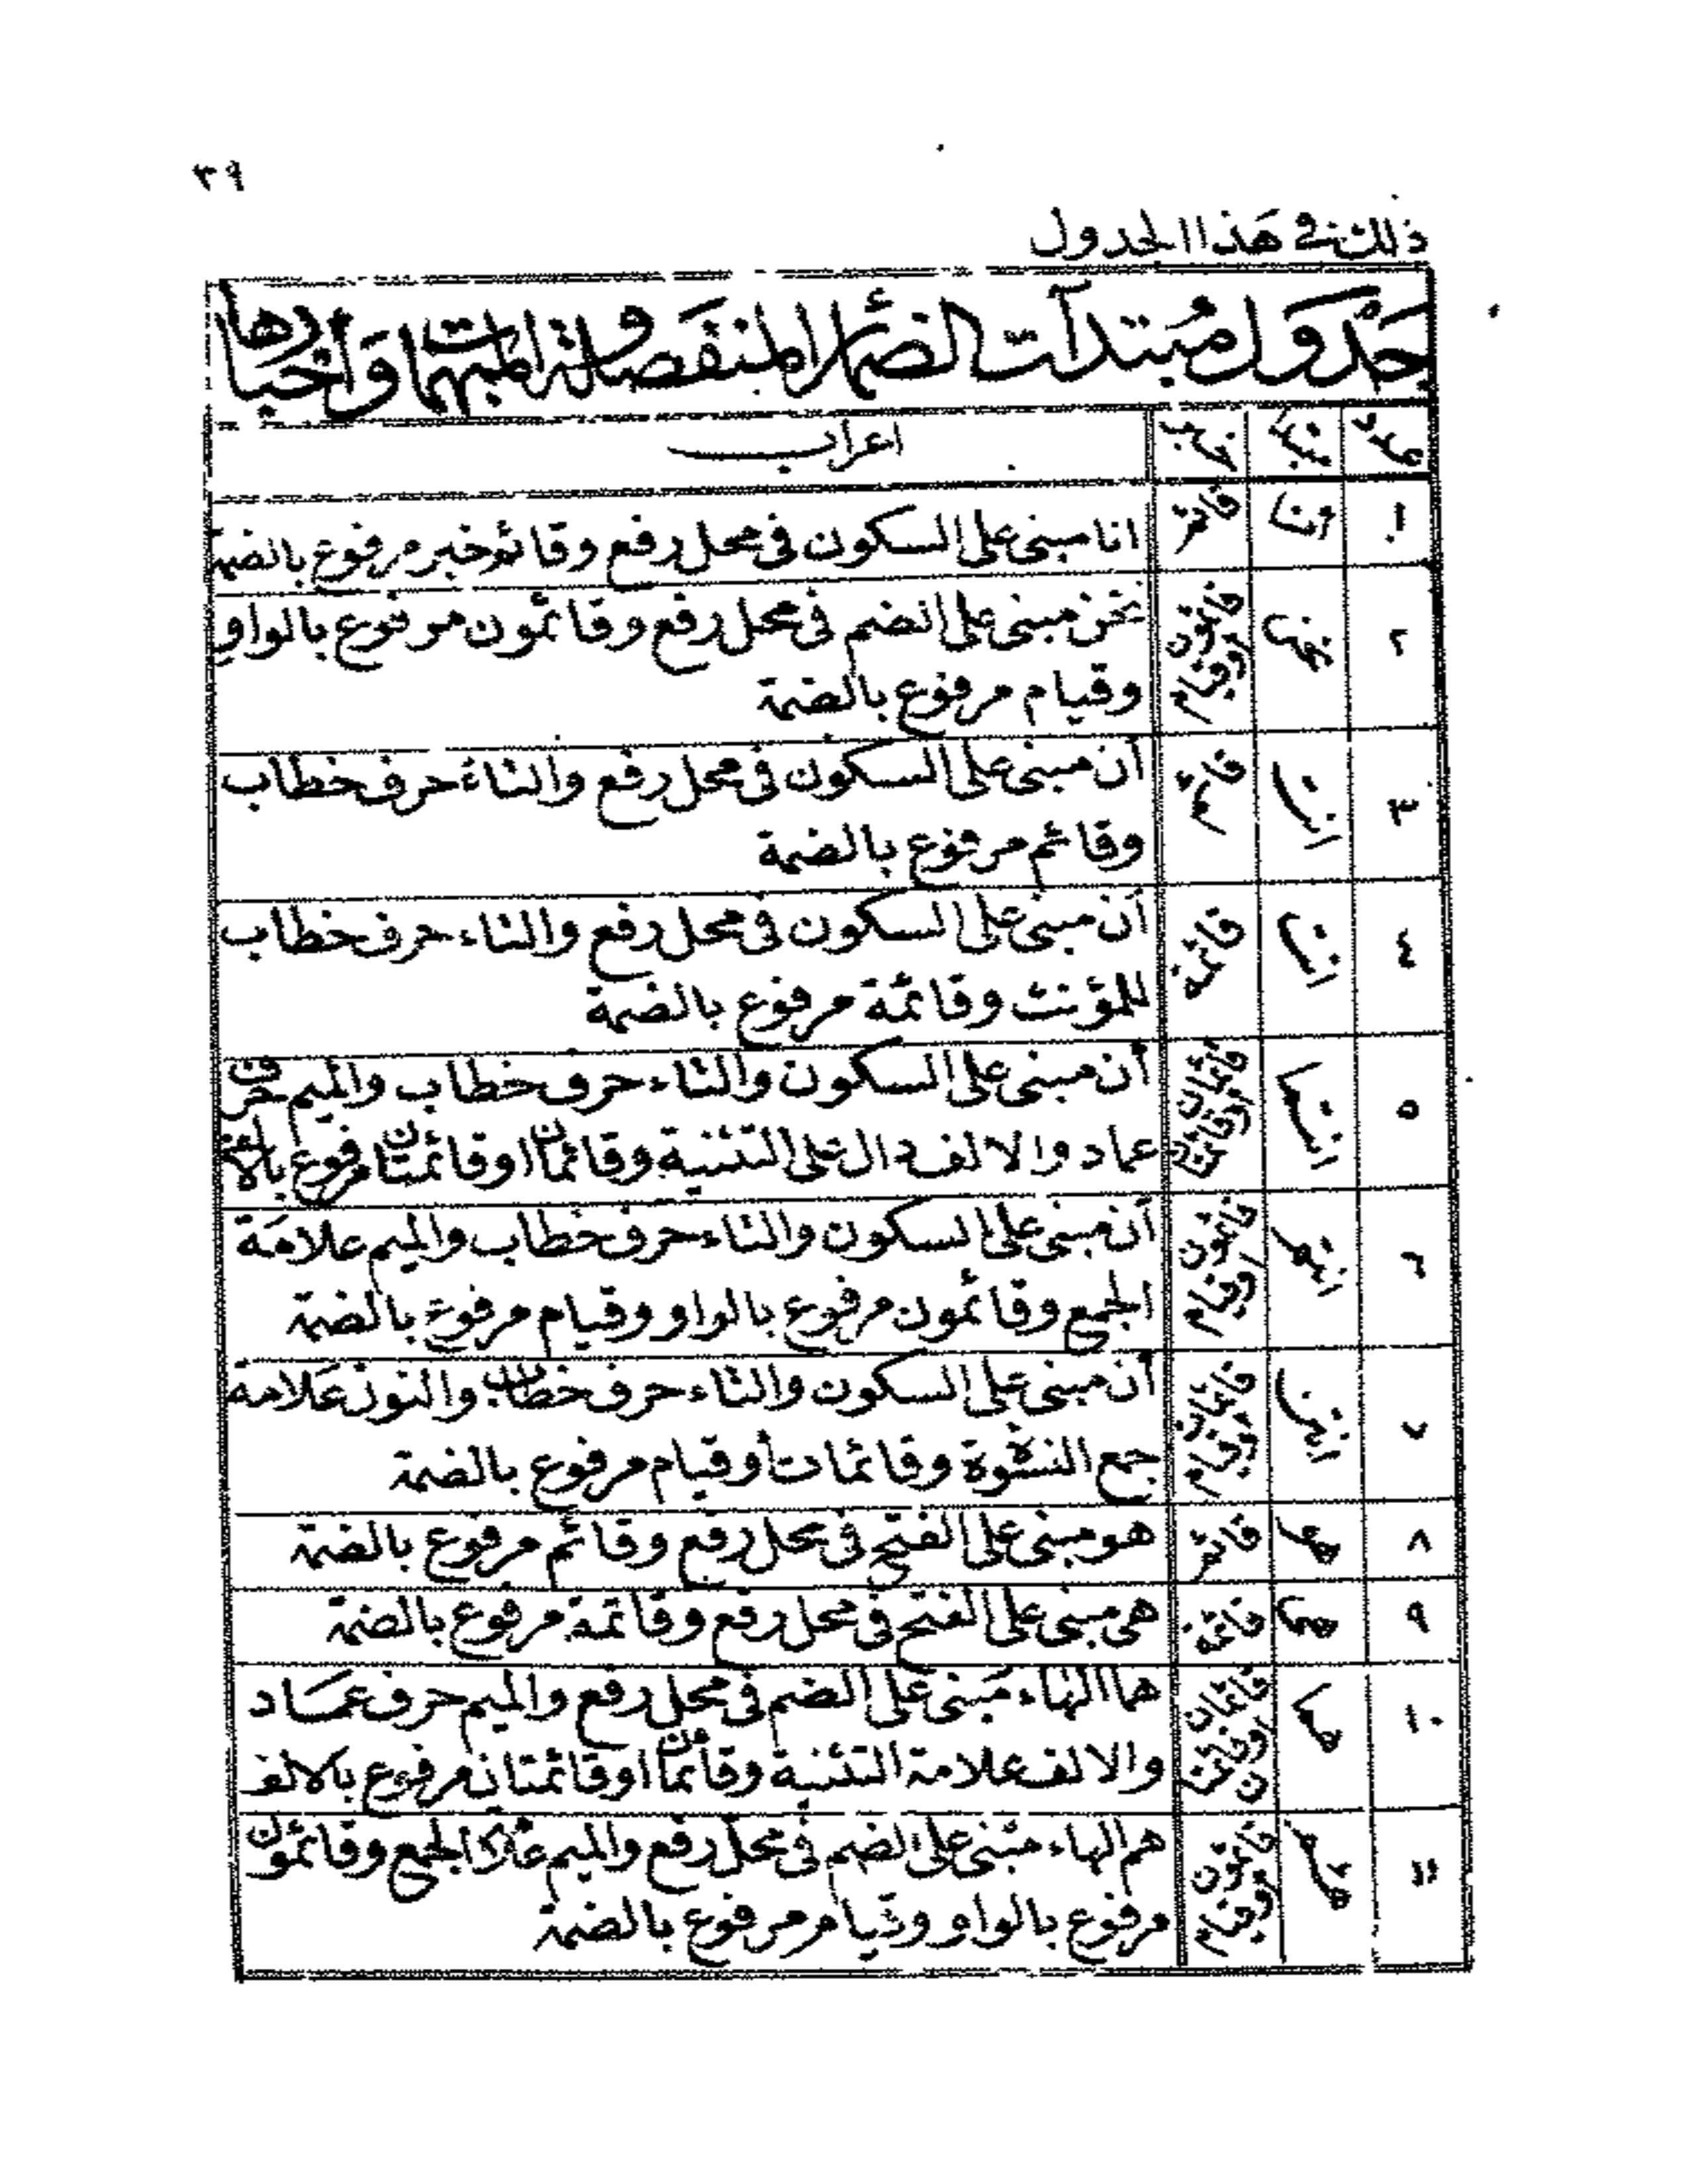 ٣٩
ذلك في هذا الجدول
جَدْوَل مُبتدآت الضمائر المنفَصلة والمبهمات وَأخبارها
عدد مبتدا خبر اعراب
١ أنا قائم انا مبنى على السكون فى محل رفع وقائم خبر مرفوع بالضمة
٢ نحن قائمون اوقيام نحن مبنى على الضم فى محل رفع وقائمون مرفوع بالواو
وقيام مرفوع بالضمة
٣ انت قائم أن مبنى على السكون فى محل رفع والتاء حرف خطاب
وقائم مرفوع بالضمة
٤ انت قائمة أن مبنى على السكون فى محل رفع والتاء حرف خطاب
للمؤنث وقائمة مرفوع بالضمة
٥ انتما قائمان اوقائمتان أن مبنى على السكون والتاء حرف خطاب والميم حرف
عماد والالف دال على التثنية وقائمان اوقائمتان مرفوع بالالف
٦ انتم قائمون اوقيام أن مبنى على السكون والتاء حرف خطاب والميم علامَة
الجمع وقائمون مرفوع بالواو وقيام مرفوع بالضمة
٧ انتن قائمات اوقيام أن مبنى على السكون والتاء حرف خطاب والنون عَلامة
جمع النسوة وقائمات أوقيام مرفوع بالضمة
٨ هو قائم هو مبنى على الفتح فى محل رفع وقائم مرفوع بالضمة
٩ هى قائمة هى مبنى على الفتح فى محل رفع وقائمة مرفوع بالضمة
١٠ هما قائمان اوقائمتان هما الهاء مَبنى على الضم فى محل رفع والميم حرف عمَاد
والالف علامة التثنية وقائمان اوقائمتان مرفوع بالالف
١١ هم قائمون اوقيام هم الهاء مبنى على الضم فى محل رفع والميم علامة الجمع وقائمون
مرفوع بالواو وقيام مرفوع بالضمة